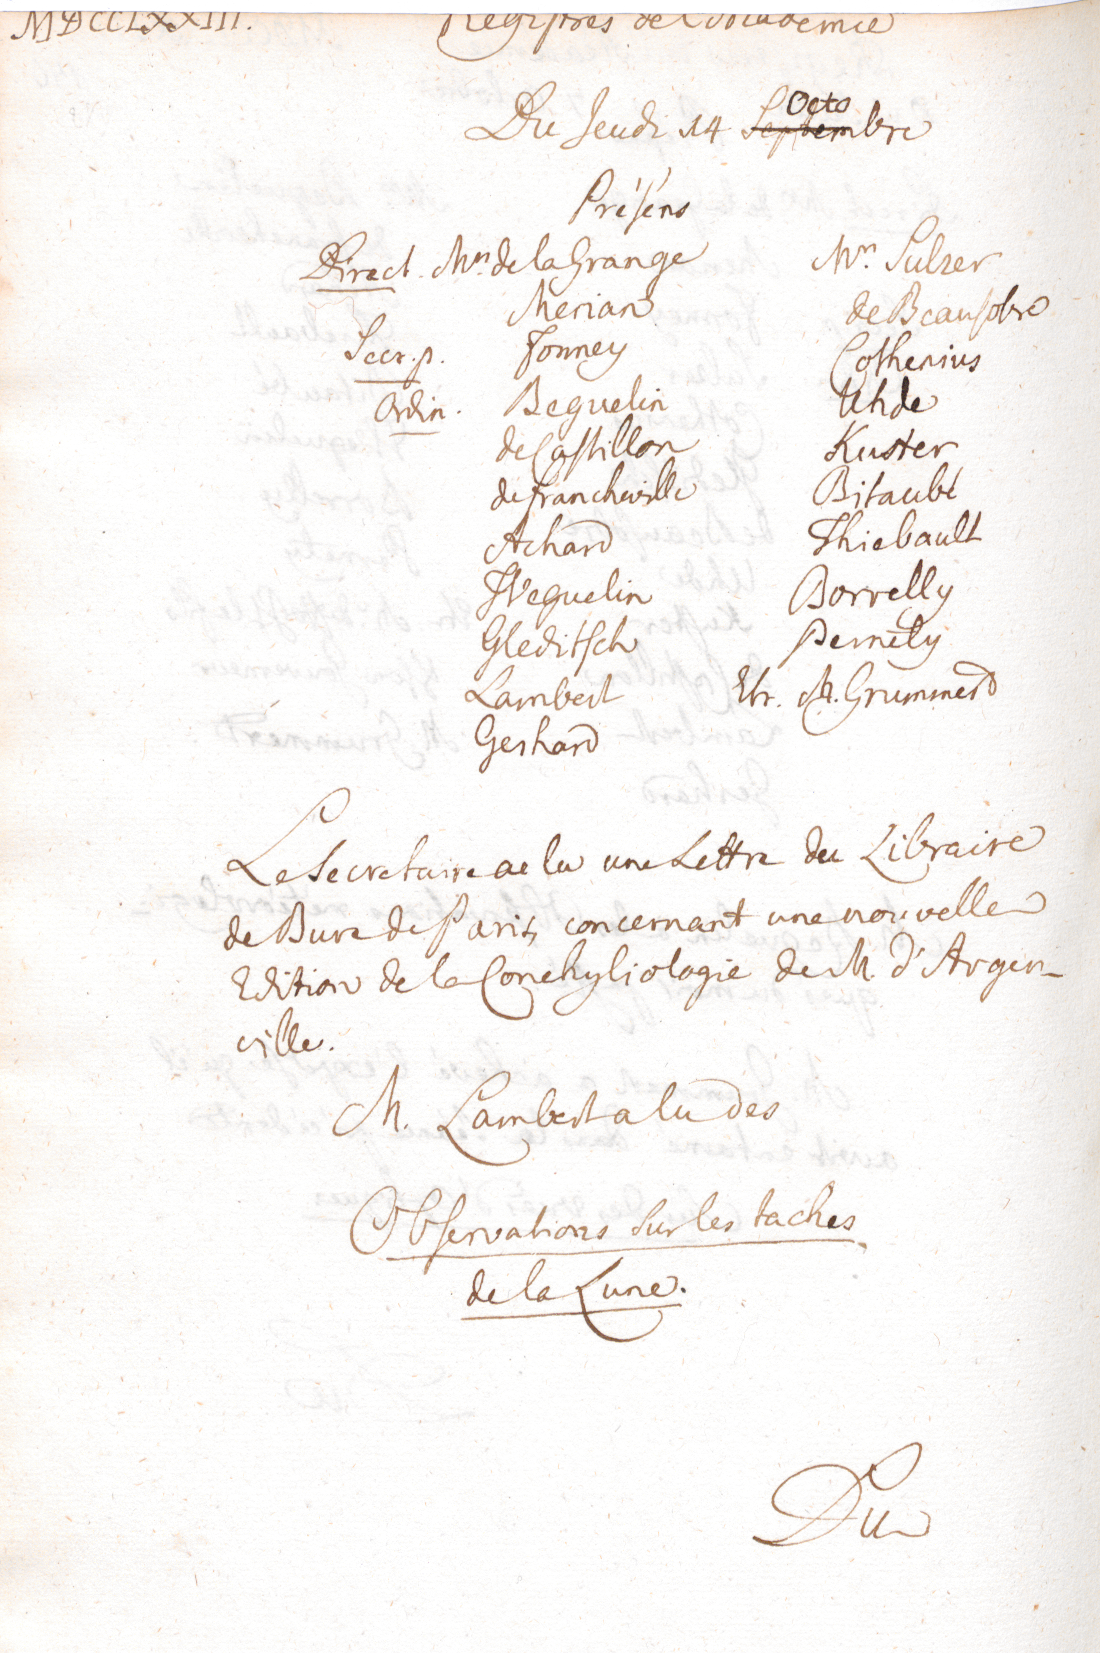 MDCCLXXIII. Registres de l'Academie
Du Jeudi 14 Septembre Octo
Présens
Direct. Mrs. de la Grange
Merian
Secr. p. Formey
Ordin. Beguelin
de Castillon
de Francheville
Achard
Weguelin
Gleditsch
Lambert
Gerhard
Mrs. Sulzer
de Beausobre
Cothenius
Uhde
Kuster
Bitaubé
Thiebault
Borrelly
Pernety
Etr. M. Grummerd
Le Secretaire a lu une Lettre du Libraire
de Bure de Paris, concernant une nouvelle
Edition de la Conchyliologie de M. d'Argen-
ville.
M. Lambert a lu des
Observations sur les taches
de la Lune.
Du